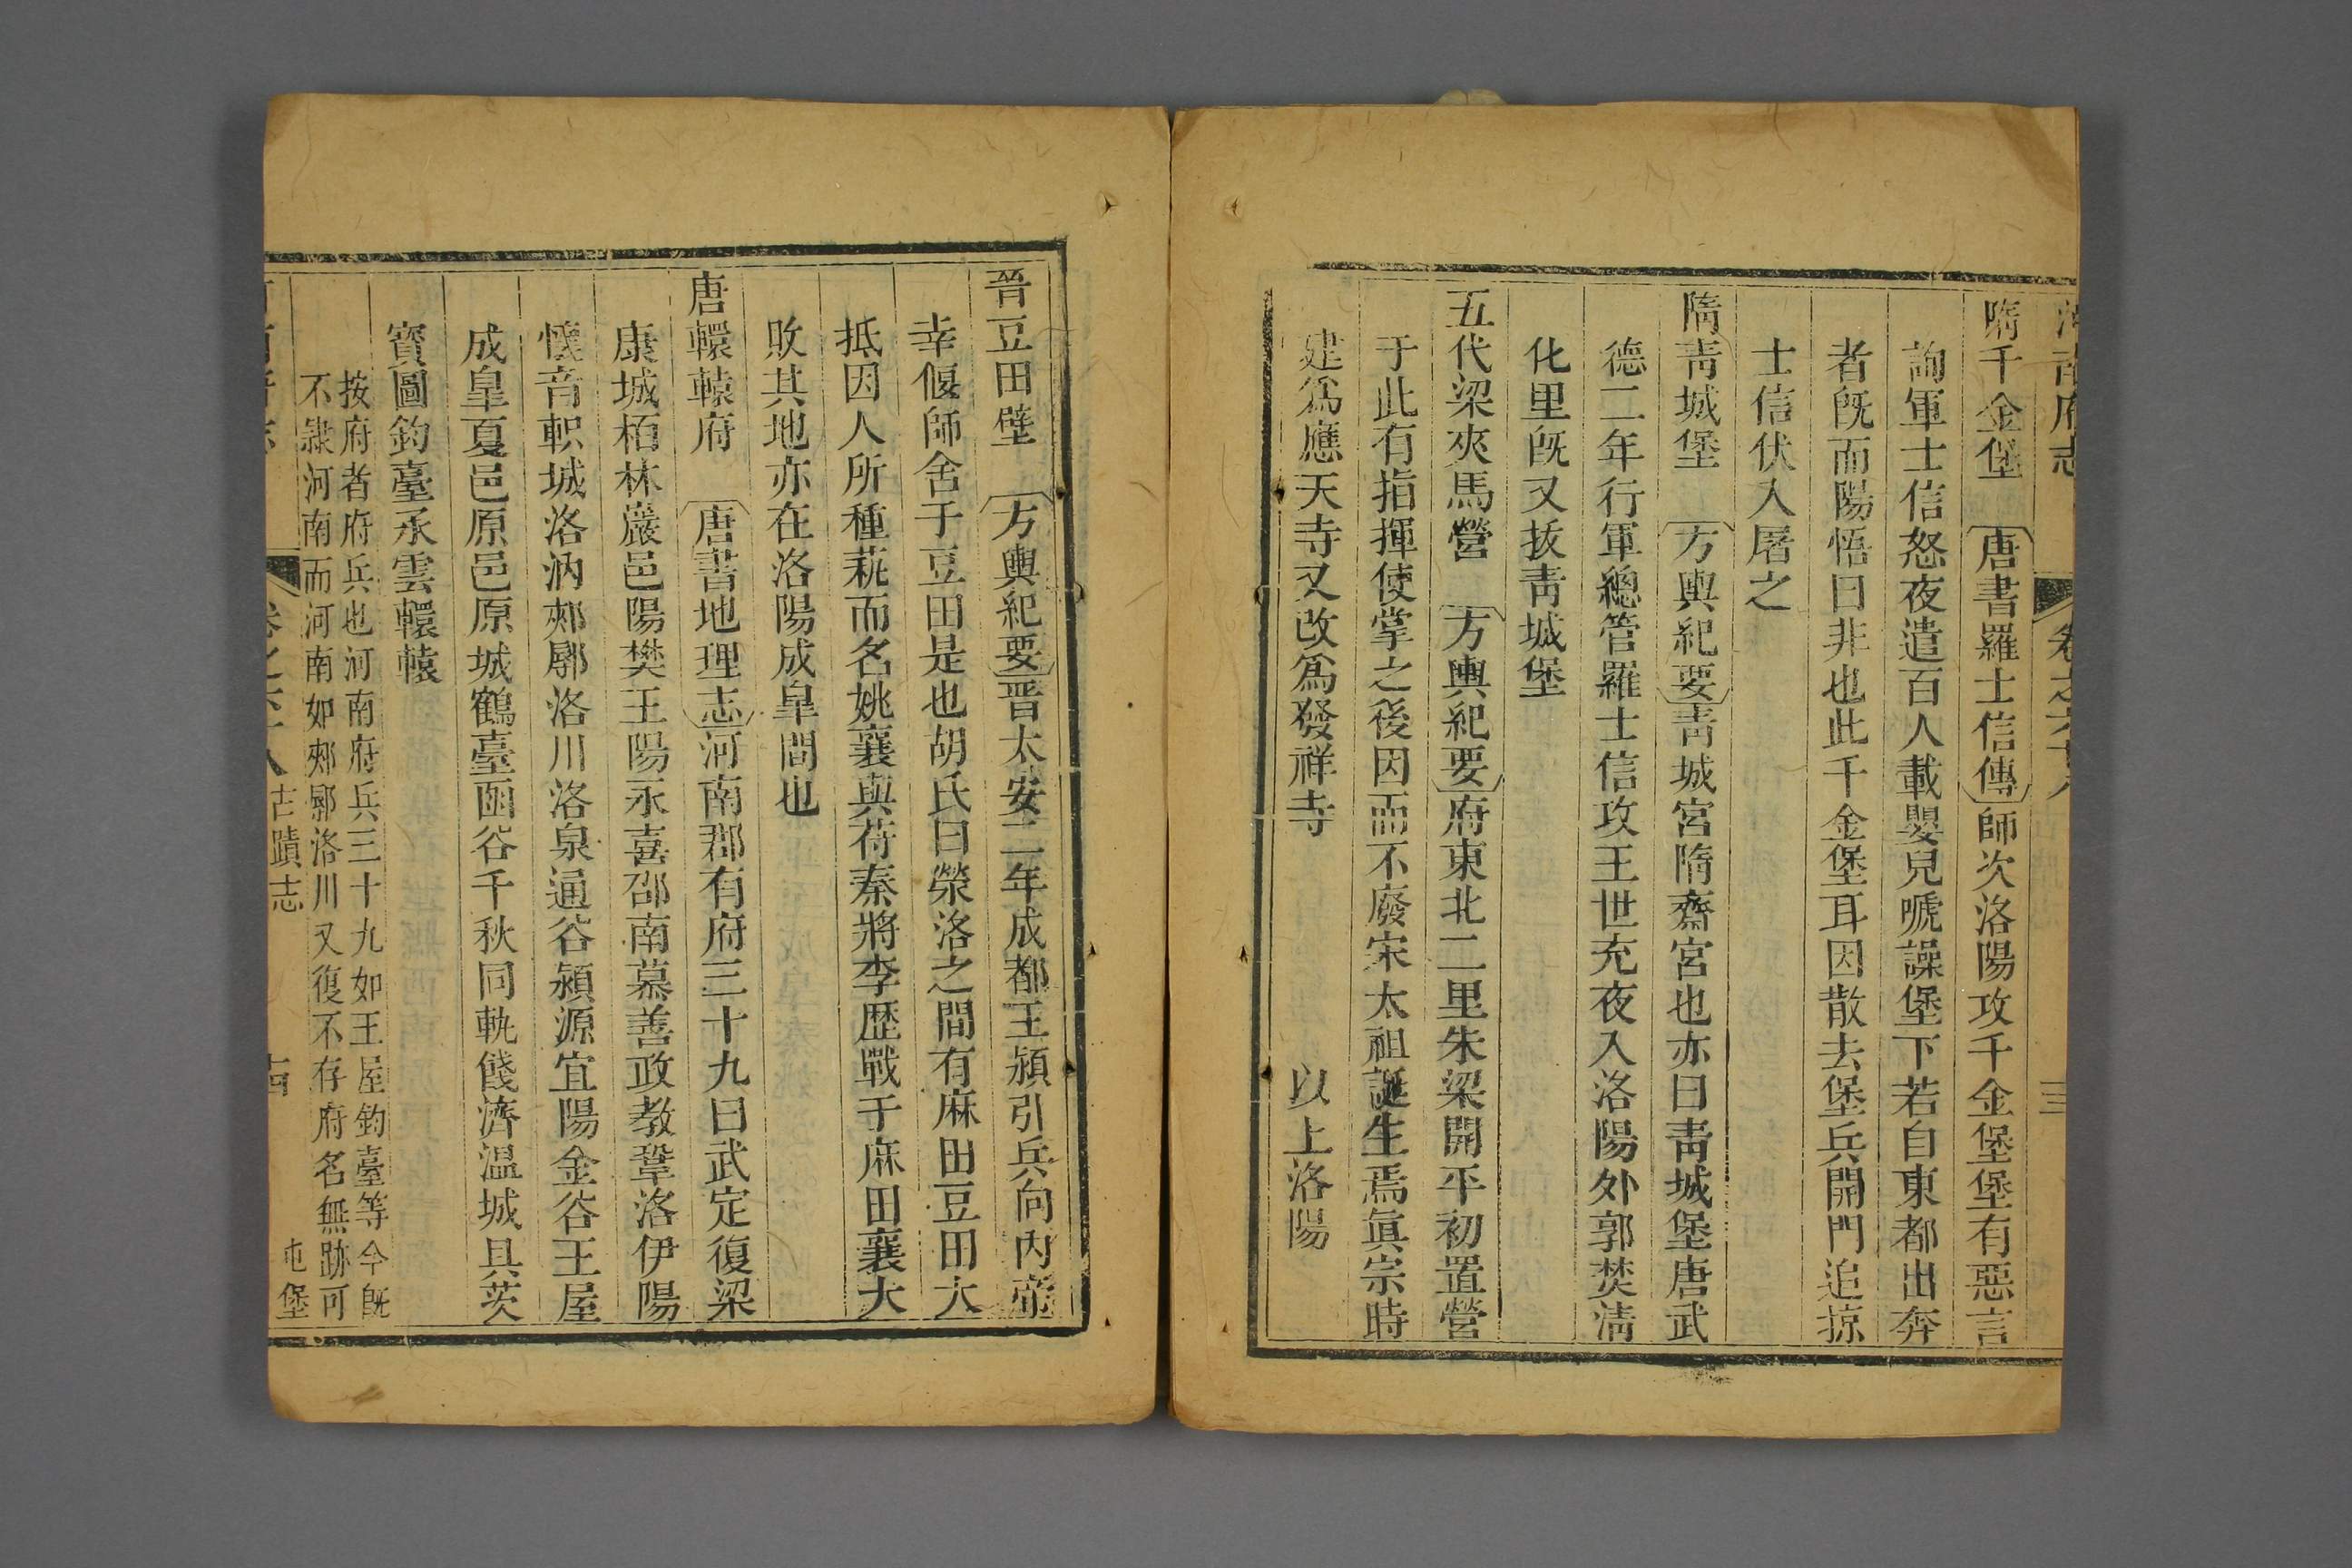 隋千金堡 唐書羅士信傳師次洛陽攻千金堡堡有惡言
詢軍士信怒夜遣百人載嬰兒嗁譟堡下若自東都出奔
者旣而陽悟曰非也此千金堡耳因散去堡兵開門追掠
士信伏入屠之
隋靑城堡 方輿紀要靑城宮隋齋宮也亦曰靑城堡唐武
德二年行軍總管羅士信攻王世充夜入洛陽外郭焚淸
化里旣又拔靑城堡
五代梁夾馬營 方輿紀要府東北二里朱梁開平初置營
于此有指揮使掌之後因而不廢宋太祖誕生焉眞宗時
建爲應天寺又改爲發祥寺 以上洛陽
晉豆田壁 方輿紀要晋太安二年成都王潁引兵向內帝
幸偃師舍于豆田是也胡氏曰滎洛之間有麻田豆田大
抵因人所種蓺而名姚襄與苻秦將李歴戰于麻田襄大
敗其地亦在洛陽成皐間也
唐轘轅府 唐書地理志河南郡有府三十九曰武定復梁
康城栢林巖邑陽樊王陽永嘉邵南慕善政教鞏洛伊陽
懷音軹城洛汭郟鄏洛川洛泉通谷潁源宜陽金谷王屋
成皐夏邑原邑原城鶴臺函谷千秋同軌餞濟溫城具茨
寳圖鈞臺承雲轘轅
按府者府兵也河南府兵三十九如王屋鈞臺等今旣
不隷河南而河南如郟鄏洛川又復不存府名無跡可
古蹟志
屯堡